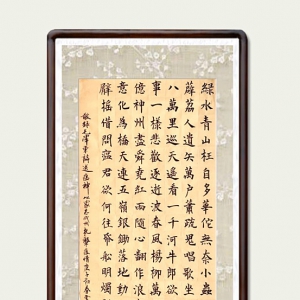 綠水青山枉自多華佗無奈小蟲
薜荔人遺矢萬戶蕭疏鬼唱歌坐
八萬里巡天遙看一千河牛郎欲
事一樣悲歡逐逝波春風楊柳萬
億神州盡舜堯紅雨隨心翻作浪
意化為橋天連五嶺銀鋤落地動
臂搖借問瘟君欲何往紙船明燭
敬錄毛澤東詩送瘟神